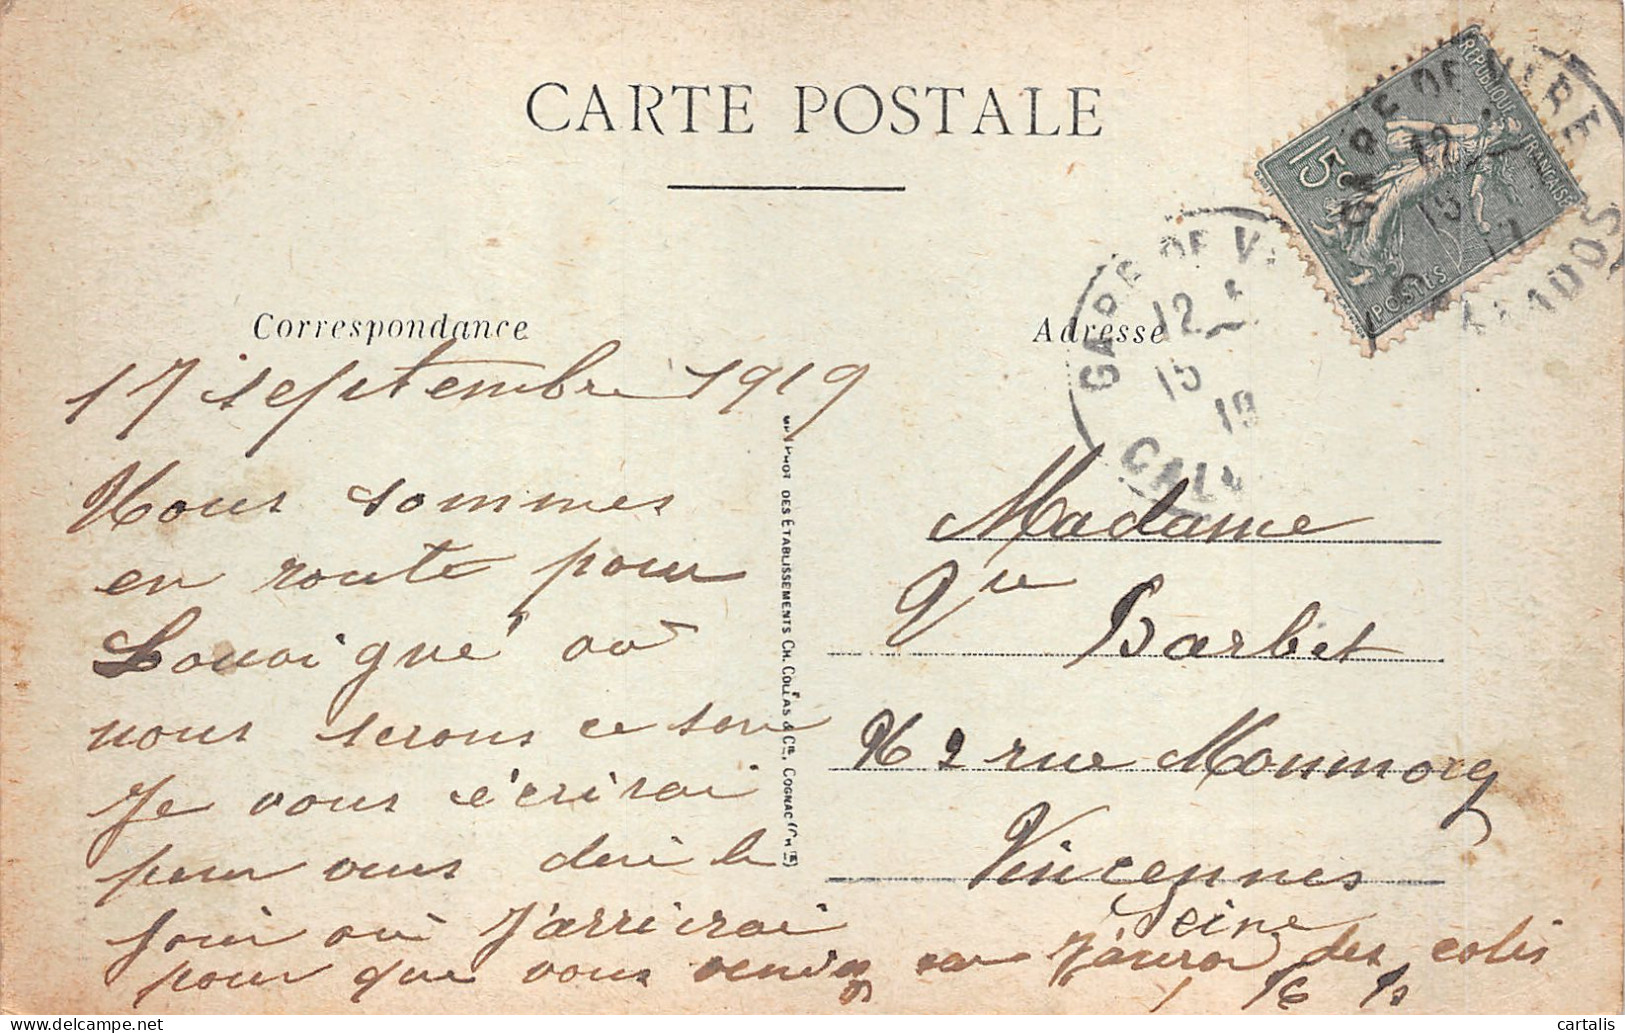 CARTE POSTALE
RÉPUBLIQUE FRANÇAISE
15c
POSTES
GARE DE VIRE
12
15
19
CALVADOS
GARE DE V
12
15
19
CAL
Correspondance
17 septembre 1919
Nous sommes
en route pour
Louvigné où
nous serons ce soir
Je vous écrirai
pour vous dire le
jour où J'arriverai
pour que vous veniez car J'aurai des colis
DES ÉTABLISSEMENTS CH. COLLAS & Cie, COGNAC (Chte)
Adresse
Madame
Vve Barbet
No 2 rue Monmorcy
Vincennes
Seine
delcampe.net
cartalis